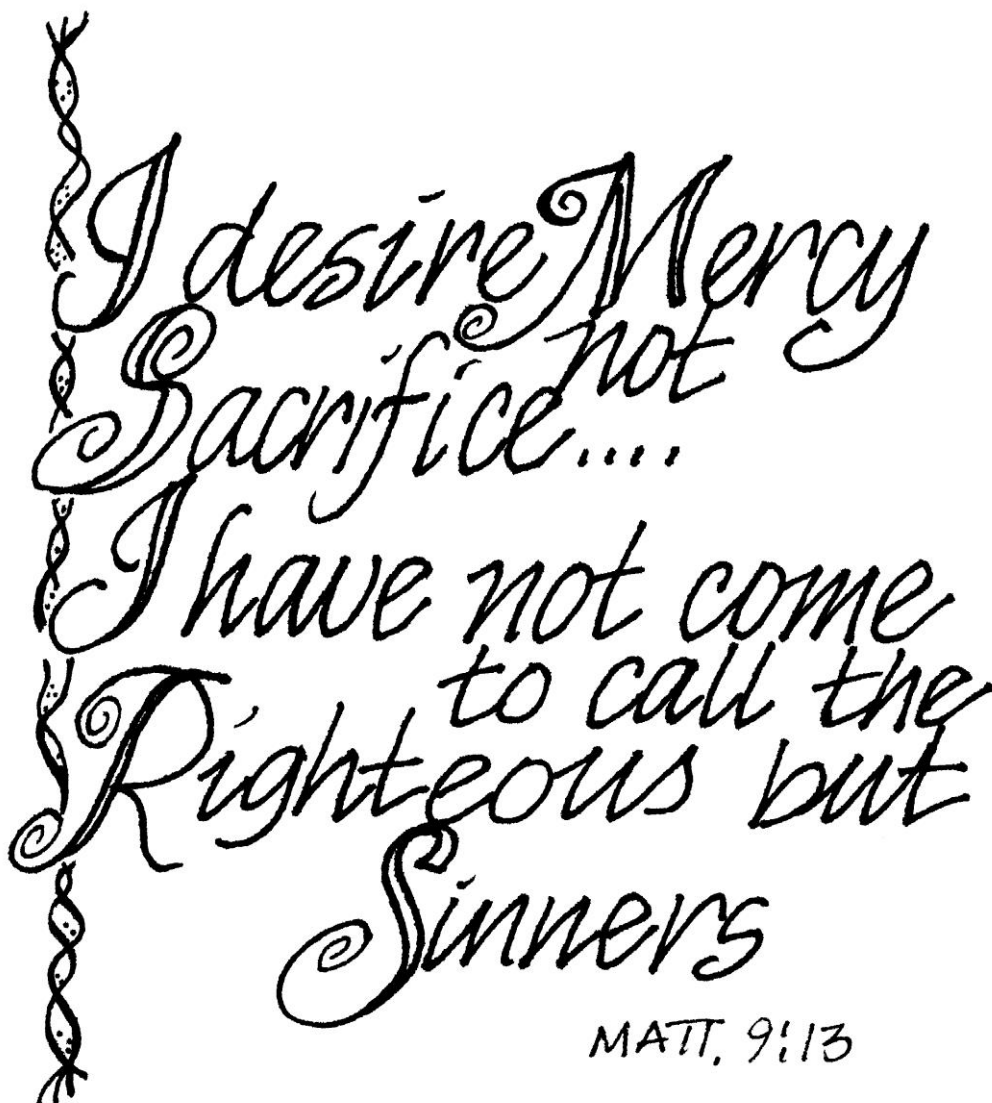 I desire Mercy
not
Sacrifice....
I have not come
to call the
Righteous but
Sinners
MATT. 9:13